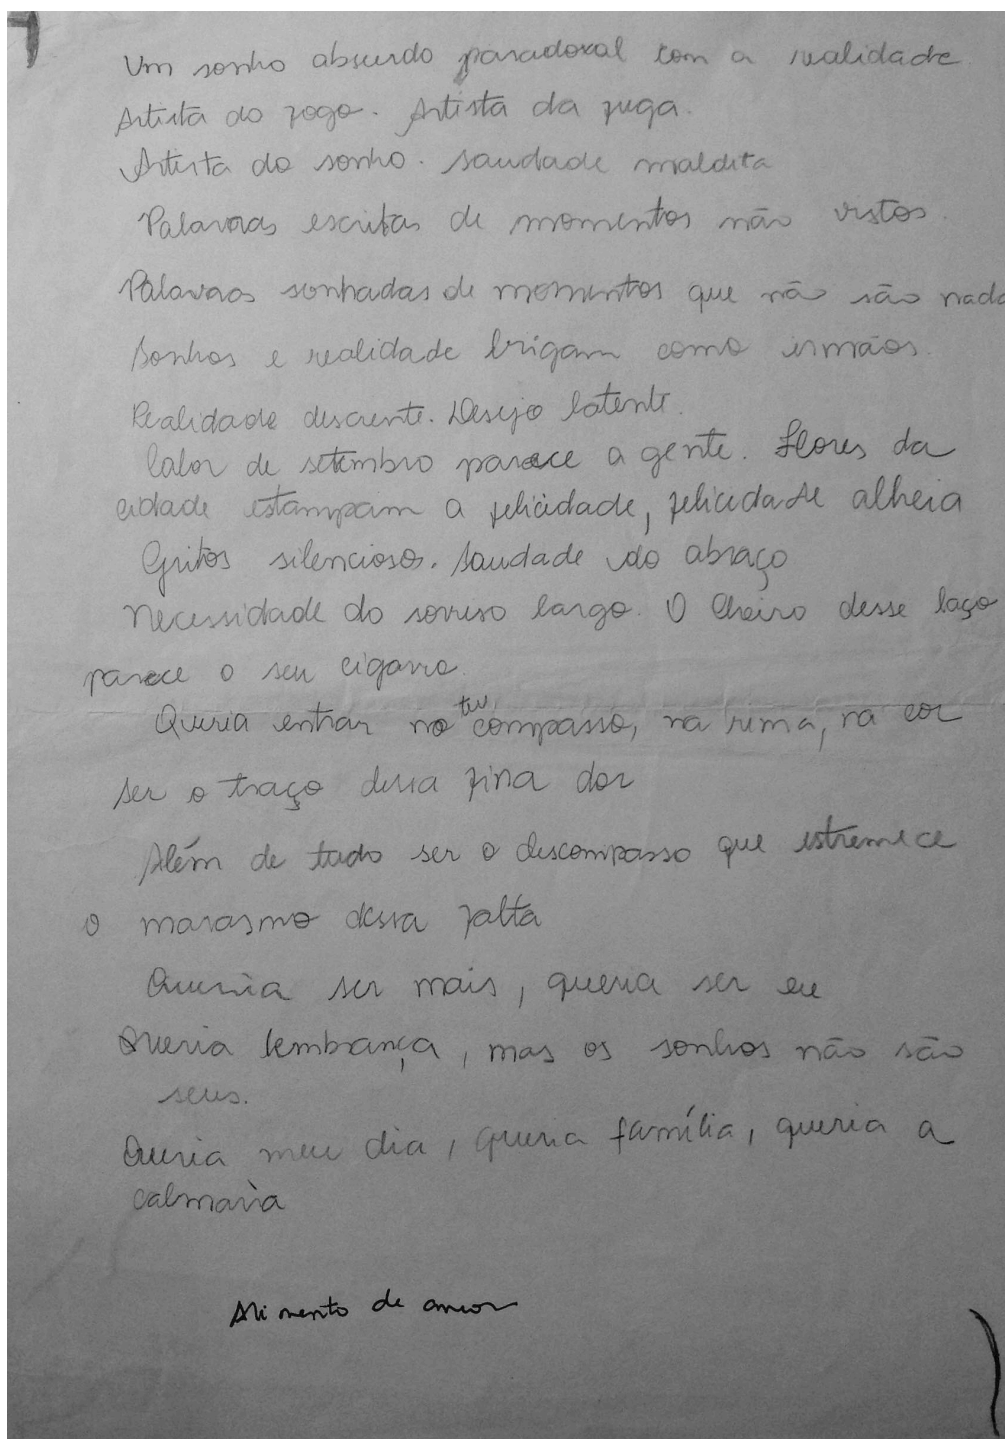 Um sonho absurdo paradoxal com a realidade.
Artista do fogo. Artista da fuga.
Artista do sonho. Saudade maldita
Palavras escritas de momentos não vistos.
Palavras sonhadas de momentos que não são nada
Sonhos e realidade brigam como irmãos.
Realidade descrente. Desejo latente.
Calor de setembro parece a gente. Flores da
cidade estampam a felicidade, felicidade alheia
Gritos silenciosos. Saudade do abraço
Necessidade do sorriso largo. O cheiro desse laço
parece o seu cigarro.
Queria entrar no teu compasso, na rima, na cor
ser o traço dessa fina dor
Além de tudo ser o descompasso que estremece
o marasmo dessa falta
Queria ser mais, queria ser eu
Queria lembrança, mas os sonhos não são
seus.
Queria meu dia, queria família, queria a
calmaria
Alimento de amor